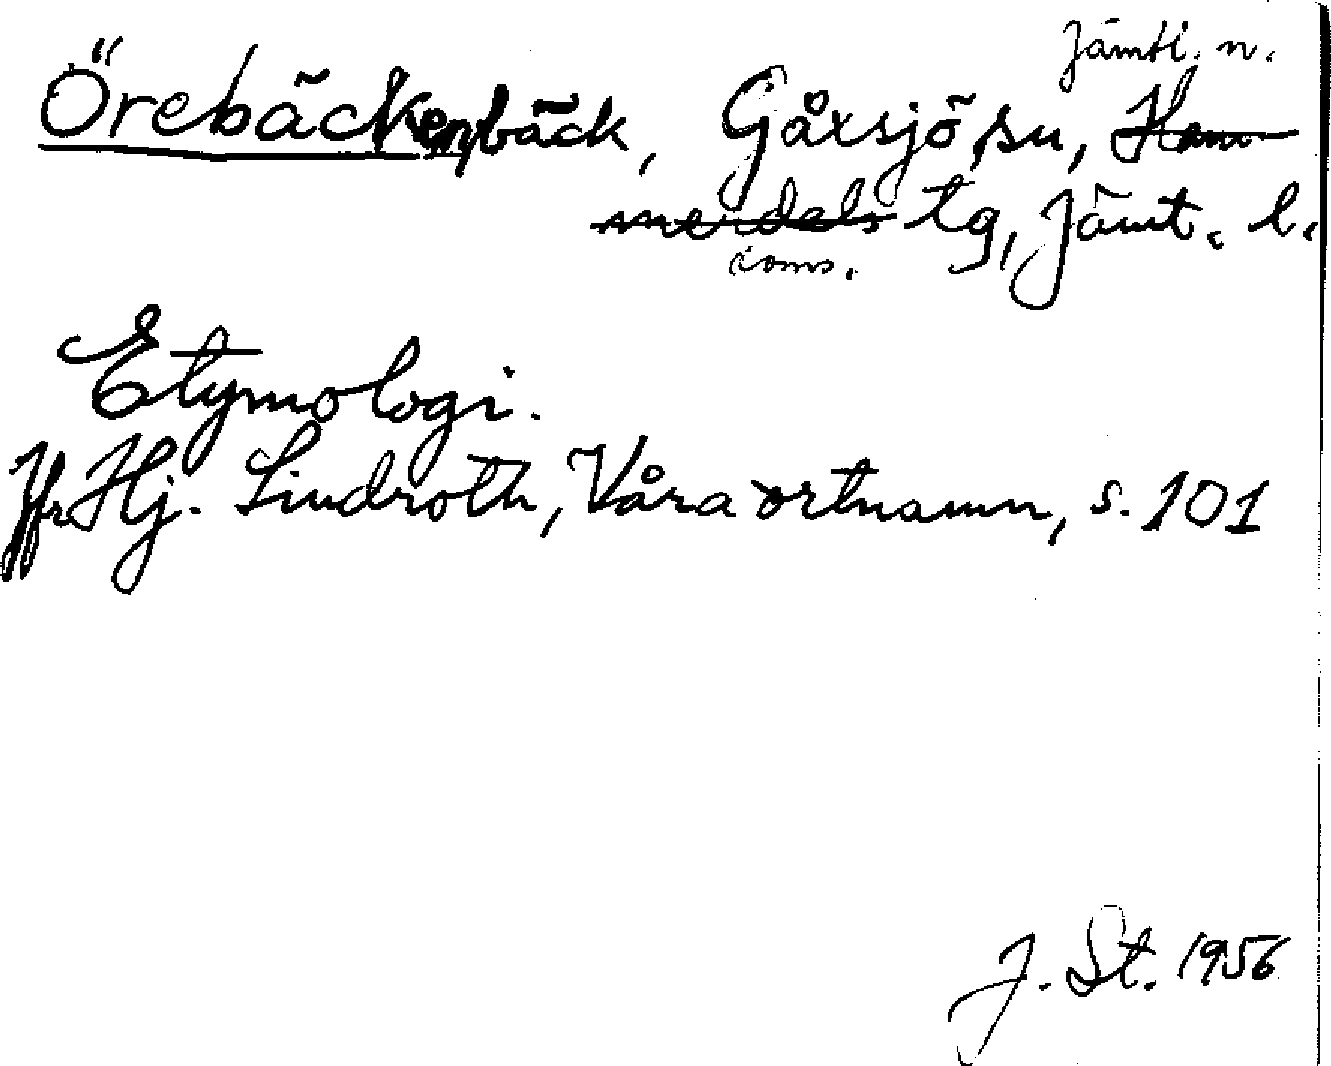 Jämtl. n.
Örebäcken, bäck, Gåxsjö sn, Ham-
merdals tg, Jämt. l.
doms.
Etymologi.
Jfr Hj. Lindroth, Våra ortnamn, s. 101
J. St. 1956